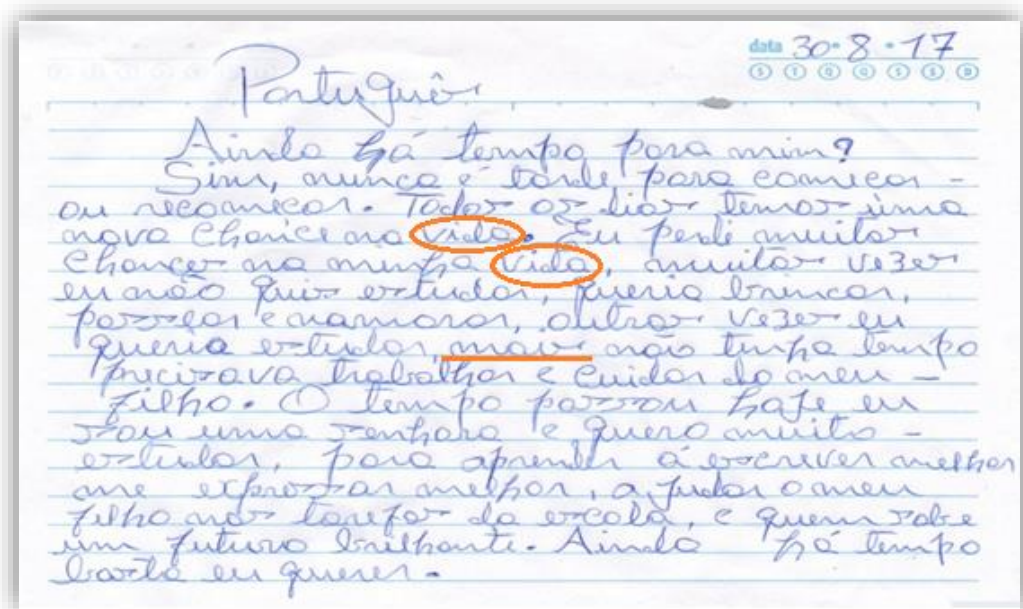 data 30·8·17
S T Q Q S S D
Português
Ainda há tempo para mim?
Sim, nunca é tarde para começar -
ou recomeçar. Todos os dias temos uma
nova chance na vida. Eu perdi muitas
chances na minha vida, muitas vezes
eu não quis estudar, queria brincar,
passear e namorar, outras vezes eu
queria estudar, mais não tinha tempo
precisava trabalhar e cuidar do meu -
filho. O tempo passou hoje eu
sou uma senhora e quero muito -
estudar, para aprender á escrever melhor
me expressar melhor, ajudar o meu
filho nas tarefas da escola, e quem sabe
um futuro brilhante. Ainda há tempo
basta eu querer.